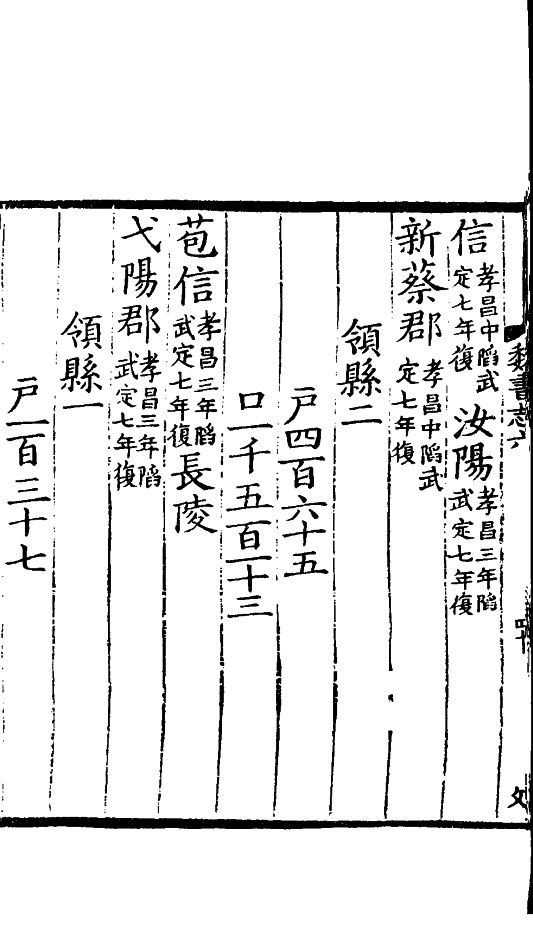 魏書志六
四十
信孝昌中陷武定七年復汝陽孝昌三年陷武定七年復
新蔡郡孝昌中陷武定七年復
領縣二
戶四百六十五
口一千五百一十三
苞信孝昌三年陷武定七年復長陵
弋陽郡孝昌三年陷武定七年復
領縣一
戶一百三十七